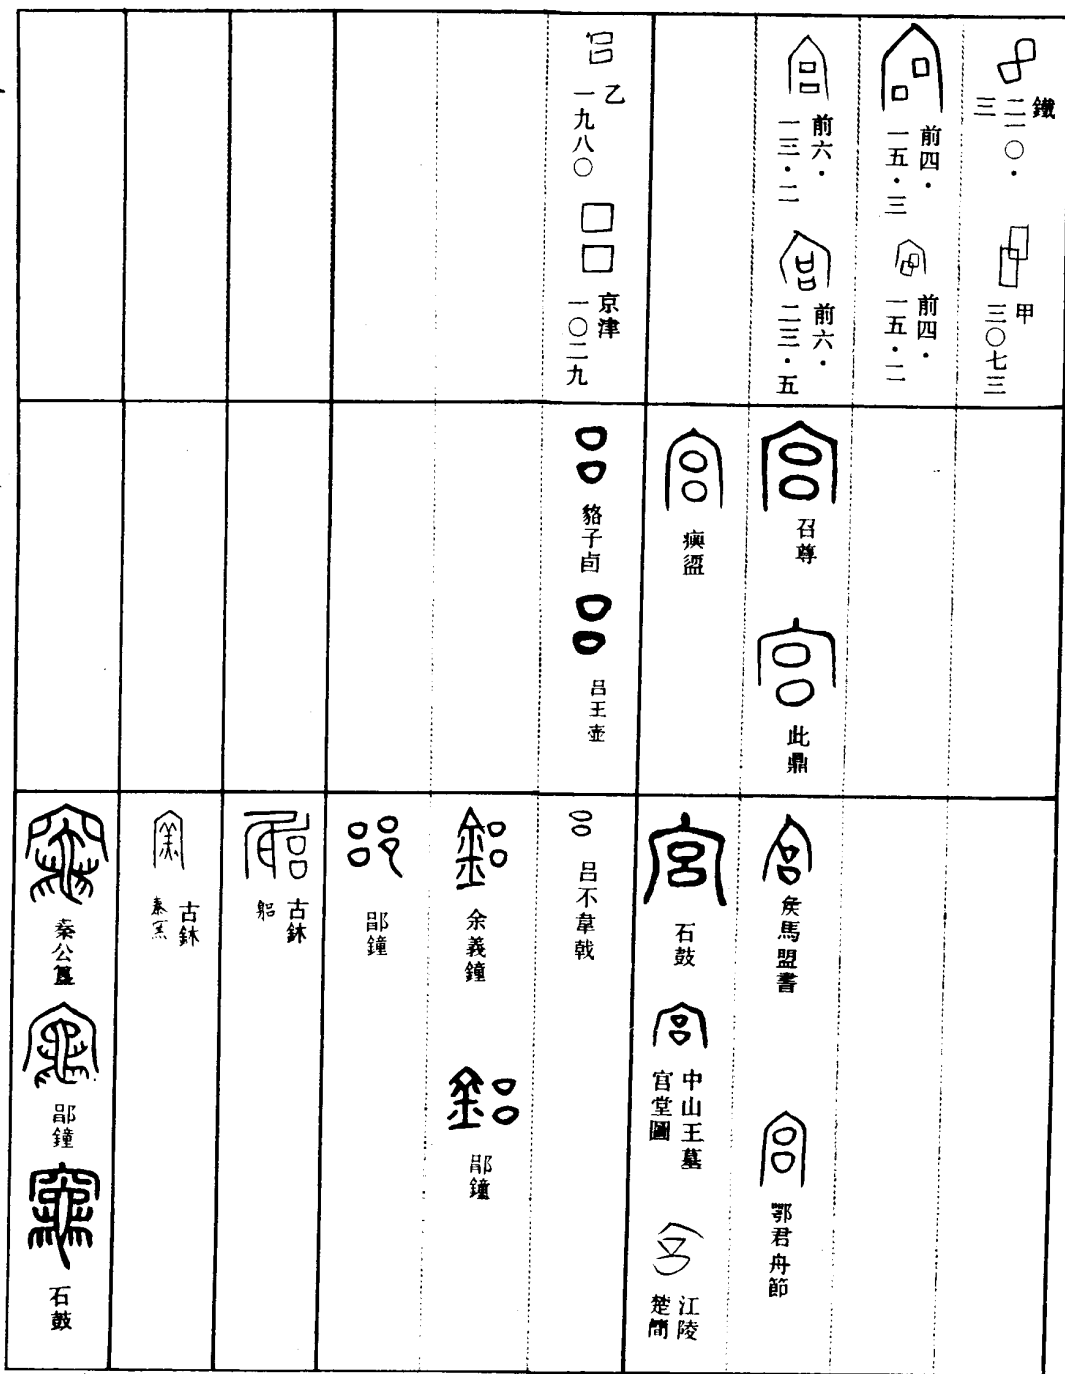 鐵
二一〇・
三
甲
三〇七三
前四・
一五・三
前四・
一五・二
前六・
一三・二
前六・
二三・五
乙
一九八〇
京津
一〇二九
召尊
此鼎
㾓盨
貉子卣
呂王壺
侯馬盟書
鄂君舟節
石鼓
中山王墓
宮堂圖
江陵
楚簡
呂不韋戟
余義鐘
郘鐘
郘鐘
古鉢
躳
古鉢
秦公簋
郘鐘
石鼓